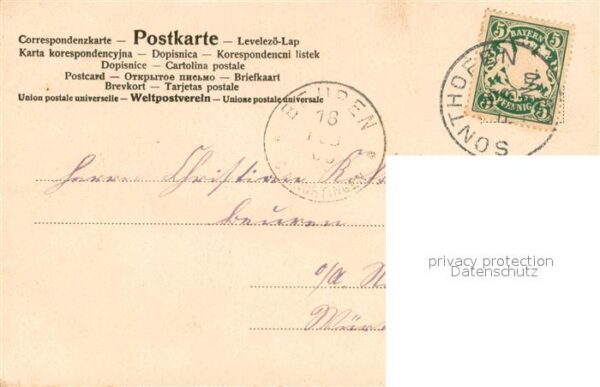 Correspondenzkarte — Postkarte — Levelező-Lap
Karta korespondencyjna — Dopisnica — Korespondencni listek
Dopisnice — Cartolina postale
Postcard — Открытое письмо — Briefkaart
Brevkort — Tarjetas postale
Union postale universelle — Weltpostverein — Unione postale universale
5 BAYERN 5
5 PFENNIG 5
SONTHOFEN
BEUREN
18
Herrn Christian
Beuren
o/a.
privacy protection
Datenschutz